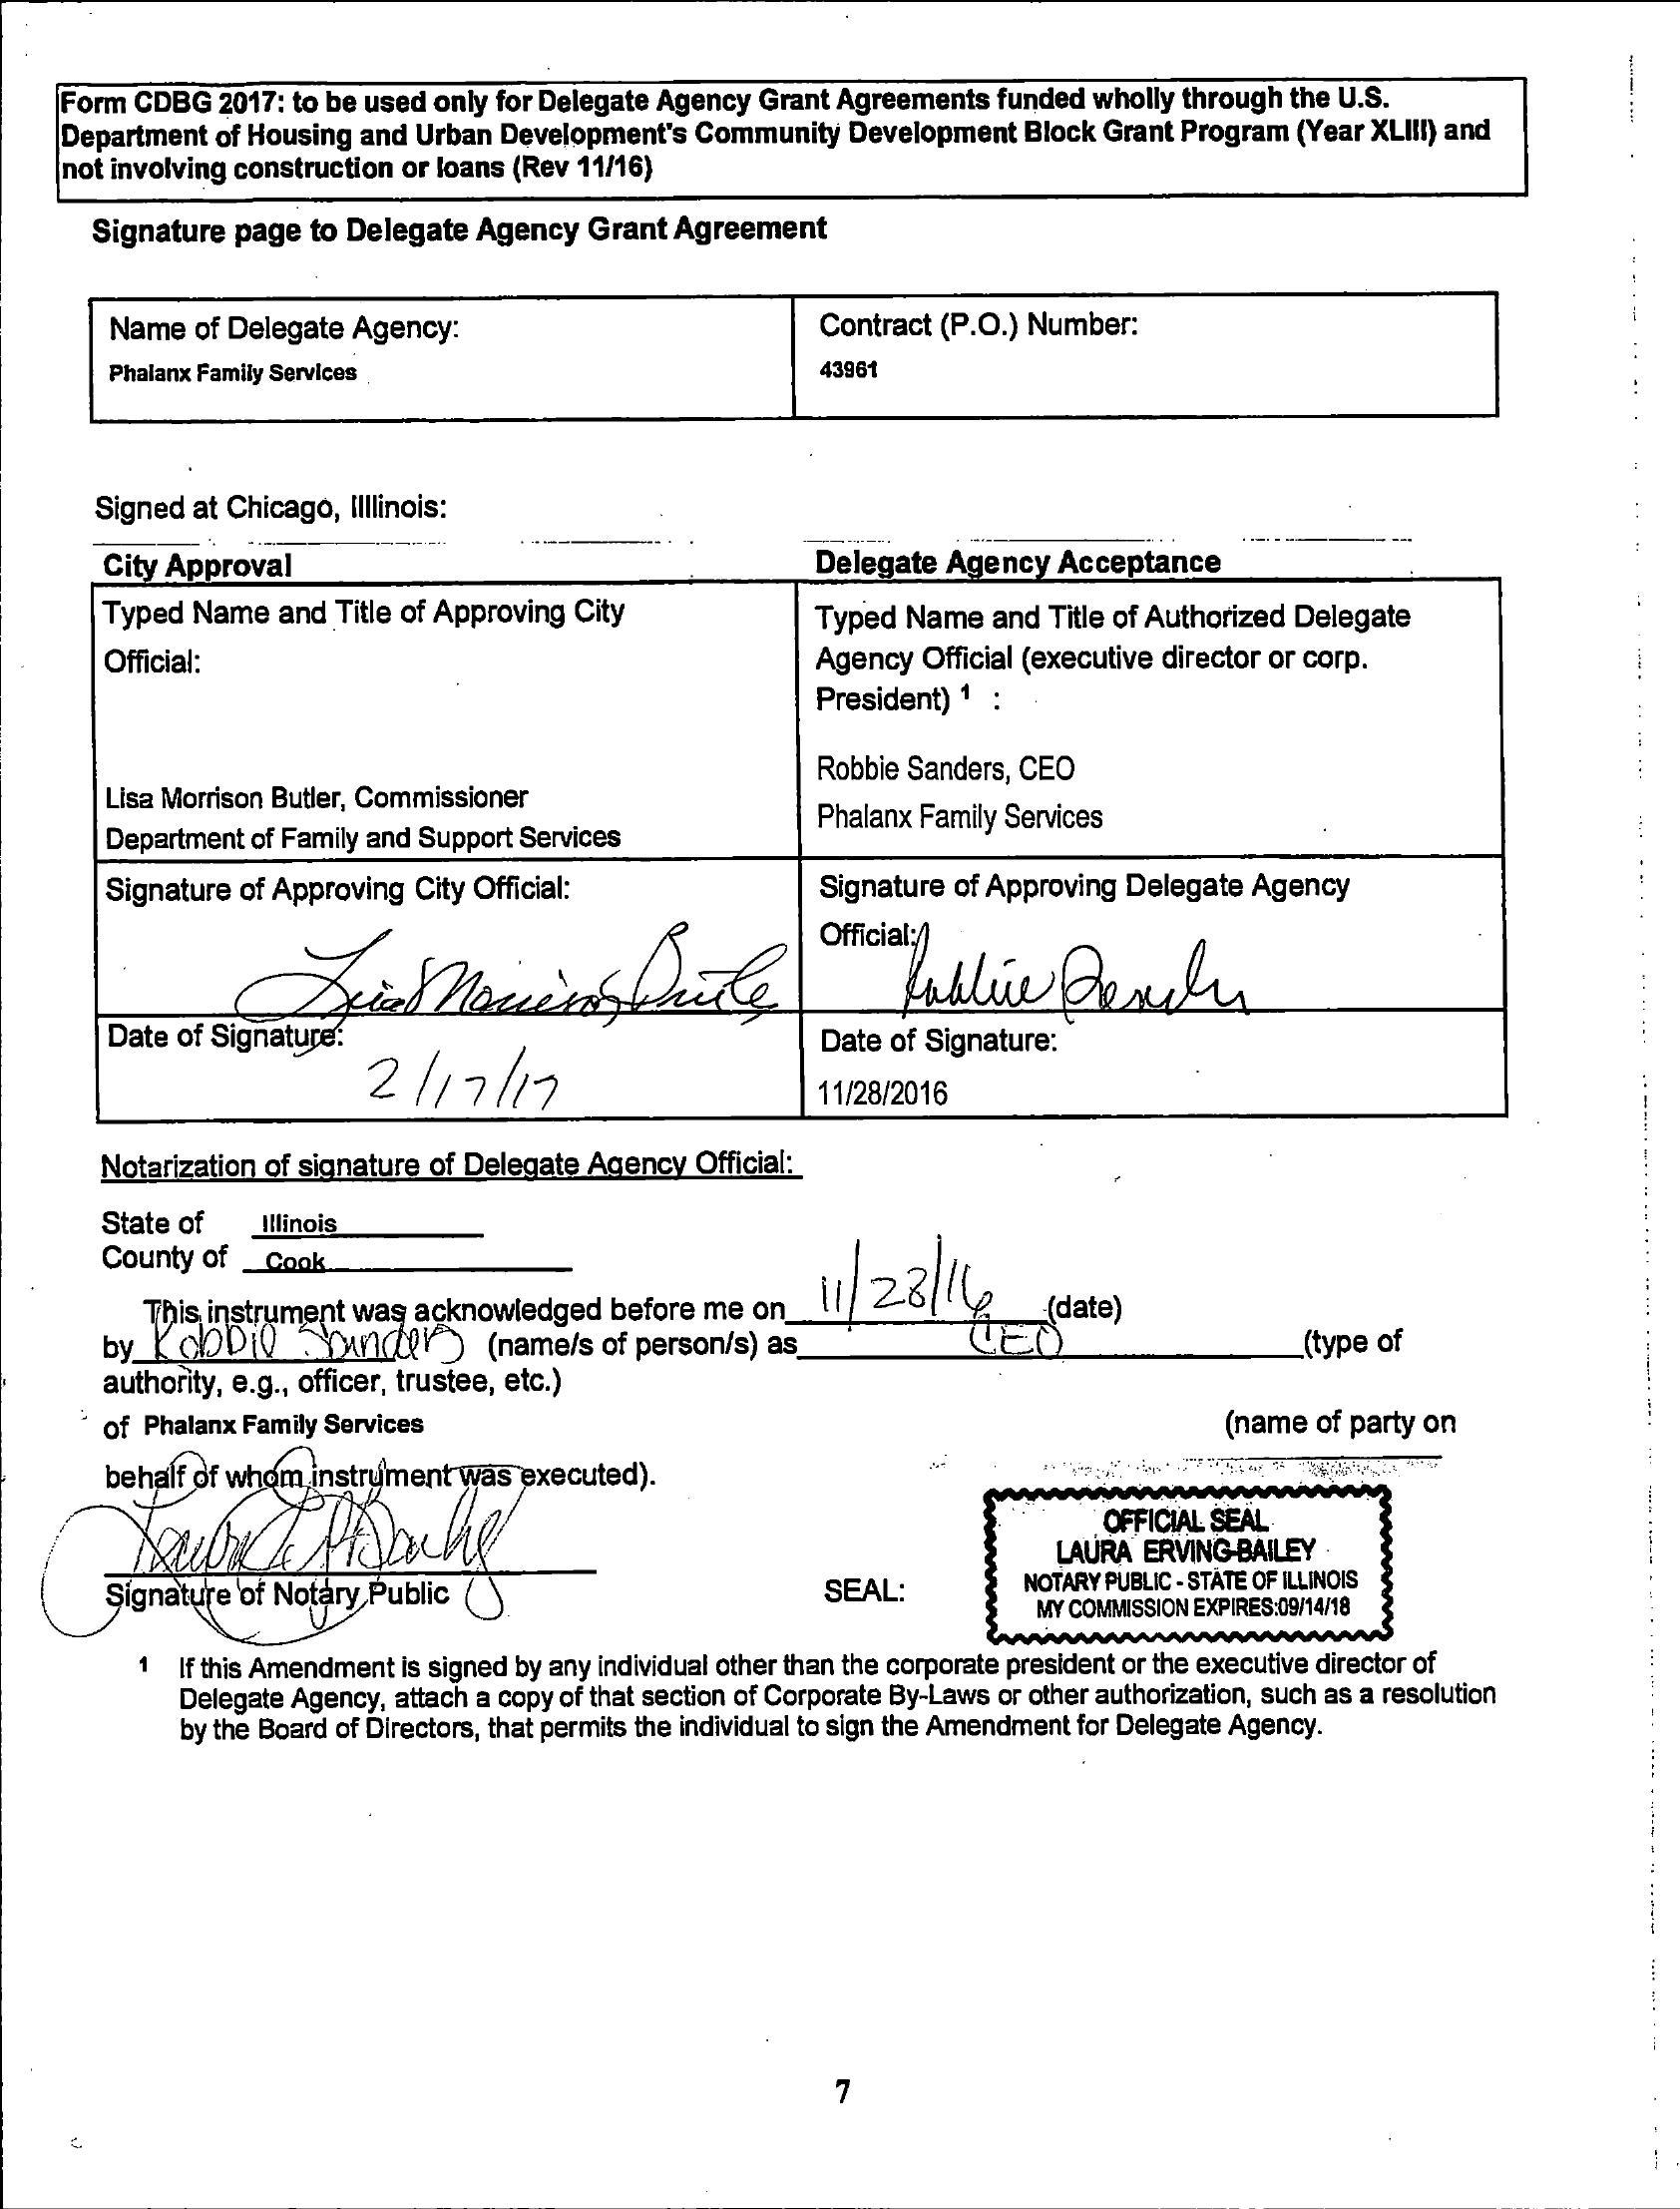 Form CDBG 2017: to be used only for Delegate Agency Grant Agreements funded wholly through the U.S.
Department of Housing and Urban Development's Community Development Block Grant Program (Year XLIII) and
not involving construction or loans (Rev 11/16)
Signature page to Delegate Agency Grant Agreement
Name of Delegate Agency:
Phalanx Family Services
Contract (P.O.) Number:
43961
Signed at Chicago, Illlinois:
City Approval
Delegate Agency Acceptance
Typed Name and Title of Approving City
Official:
Lisa Morrison Butler, Commissioner
Department of Family and Support Services
Typed Name and Title of Authorized Delegate
Agency Official (executive director or corp.
President) 1 :
Robbie Sanders, CEO
Phalanx Family Services
Signature of Approving City Official:
Lisa Morrison Butler
Signature of Approving Delegate Agency
Official:
Robbie Sanders
Date of Signature:
2/17/17
Date of Signature:
11/28/2016
Notarization of signature of Delegate Agency Official:
State of Illinois
County of Cook
This instrument was acknowledged before me on 11/28/16 (date)
by Robbie Sanders (name/s of person/s) as CEO (type of
authority, e.g., officer, trustee, etc.)
of Phalanx Family Services (name of party on
behalf of whom instrument was executed).
Signature of Notary Public
SEAL:
OFFICIAL SEAL
LAURA ERVING-BAILEY
NOTARY PUBLIC - STATE OF ILLINOIS
MY COMMISSION EXPIRES:09/14/18
1 If this Amendment is signed by any individual other than the corporate president or the executive director of
Delegate Agency, attach a copy of that section of Corporate By-Laws or other authorization, such as a resolution
by the Board of Directors, that permits the individual to sign the Amendment for Delegate Agency.
7